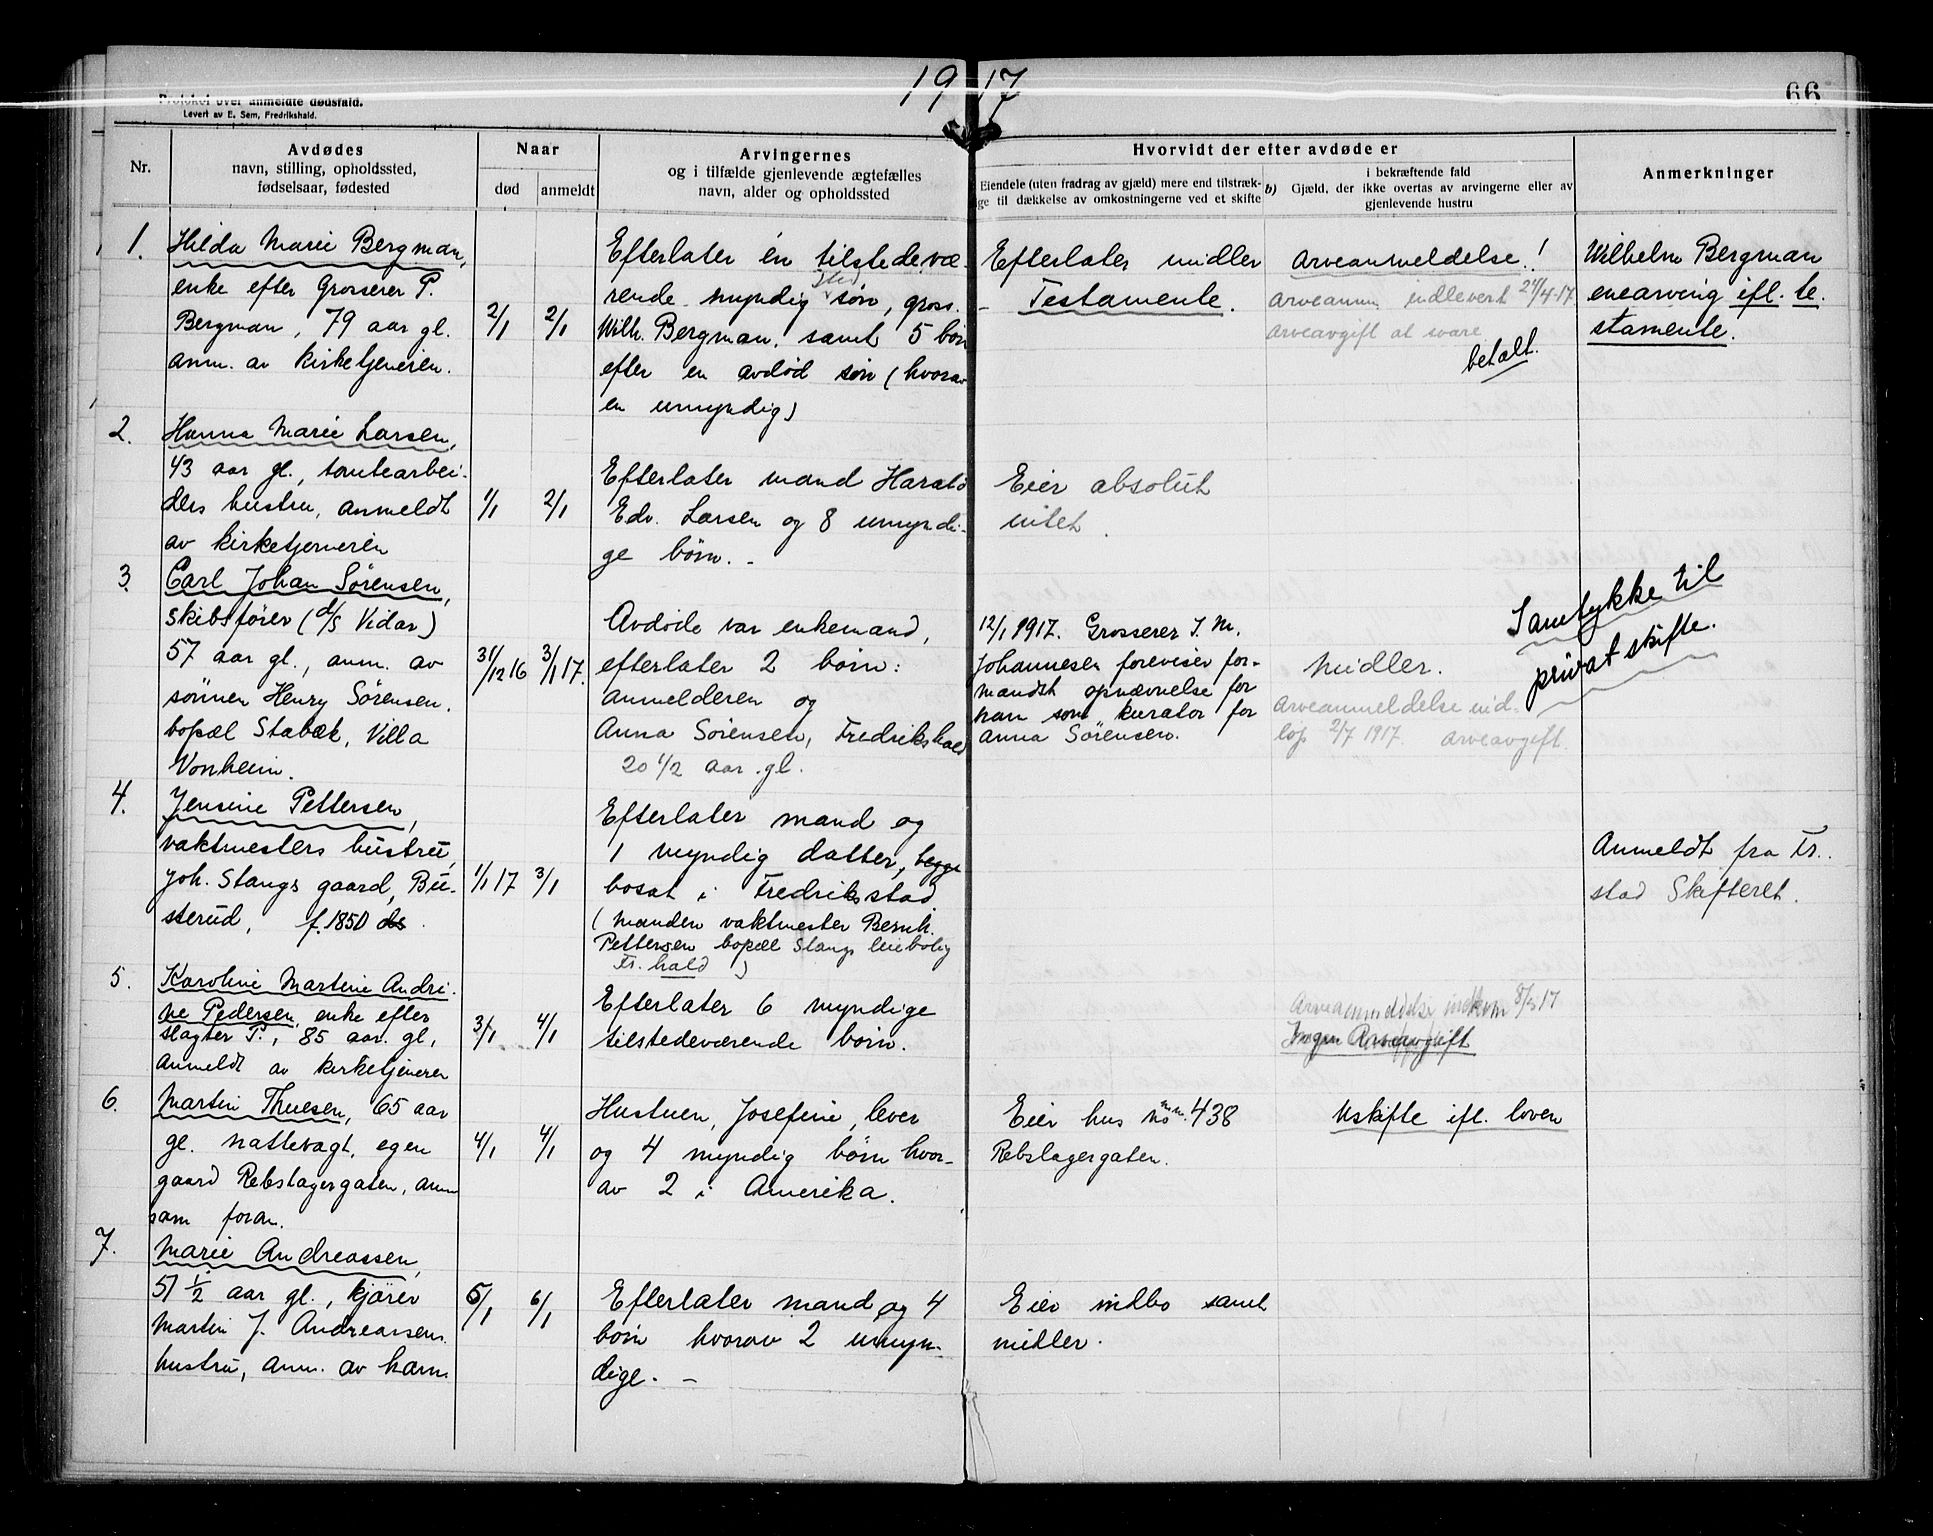 1917
66
Protokol over anmeldte dødsfald.
Levert av E. Sem, Fredrikshald.
Nr.
Avdødes
navn, stilling, opholdssted,
fødselsaar, fødested
Naar
død
anmeldt
Arvingernes
og i tilfælde gjenlevende ægtefælles
navn, alder og opholdssted
Hvorvidt der efter avdøde er
Eiendele (uten fradrag av gjæld) mere end tilstræk-
ge til dækkelse av omkostningerne ved et skifte
i bekræftende fald
b) Gjæld, der ikke overtas av arvingerne eller av
gjenlevende hustru
Anmerkninger
1.
Hilda Marie Bergman,
enke efter Grosserer P.
Bergman, 79 aar gl.
anm. av kirketjeneren.
2/1
2/1
Efterlater én tilstedevæ-
rende myndig søn, gross.
Wilh. Bergman, samt 5 børn
efter en avdød søn (hvorav
en umyndig)
Efterlater midler
- Testamente.
Arveanmeldelse!
arveanm. indlevert 24/4-17
arveavgift at svare
betalt.
Wilhelm Bergman
enearving ifl. te-
stamente.
2.
Hanna Marie Larsen,
43 aar gl., tomtearbei-
ders hustru, anmeldt
av kirketjeneren
1/1
2/1
Efterlater mand Harald
Edv. Larsen og 8 umyndi-
ge børn. -
Eier absolut
intet.
3.
Carl Johan Sørensen,
skibsfører (d/s Vidar)
57 aar gl., anm. av
sønnen Henry Sørensen.
bopæl Stabæk, Villa
Vonheim.
31/12 16
3/1 17.
Avdøde var enkemand,
efterlater 2 børn:
anmelderen og
Anna Sørensen, Fredrikshald
20 1/2 aar gl.
12/1 1917. Grosserer J. M.
Johannesen foreviser for-
mandsk. opnævnelse for
han som kurator for
Anna Sørensen.
Midler.
Arveanmeldelse ind-
løp 2/7 1917. arveavgift.
Samtykke til
privat skifte.
4.
Jensine Pettersen,
vaktmesters hustru,
Joh. Stangs gaard, Bu-
sterud, f. 1850
1/1 17
3/1
Efterlater mand og
1 myndig datter, begge
bosat i Fredriksstad
(Manden vaktmester Bernh.
Pettersen bopæl Stangs leiebolig
Fr.hald)
Anmeldt fra Fr.-
stad Skifteret.
5.
Karoline Martine Andri-
ne Pedersen, enke efter
slagter P., 85 aar gl,
Anmeldt av kirketjeneren
3/1
4/1
Efterlater 6 myndige
tilstedeværende børn.
Arveanmeldelse indkom 8/3 17
Ingen Arveavgift
6.
Martin Thuesen, 65 aar
gl. nattevagt, egen
gaard Rebslagergaten, anm
som foran.
4/1
4/1
Hustruen, Josefine lever
og 4 myndig børn hvor-
av 2 i Amerika.
Eier hus No 438
Rebslagergaten.
Uskifte ifl. loven
7.
Marie Andreassen,
51 1/2 aar gl., kjører
Martin J. Andreassens
hustru, anm. av ham
5/1
6/1
Efterlater mand og 4
børn hvorav 2 umyn-
dige. -
Eier indbo samt
midler.